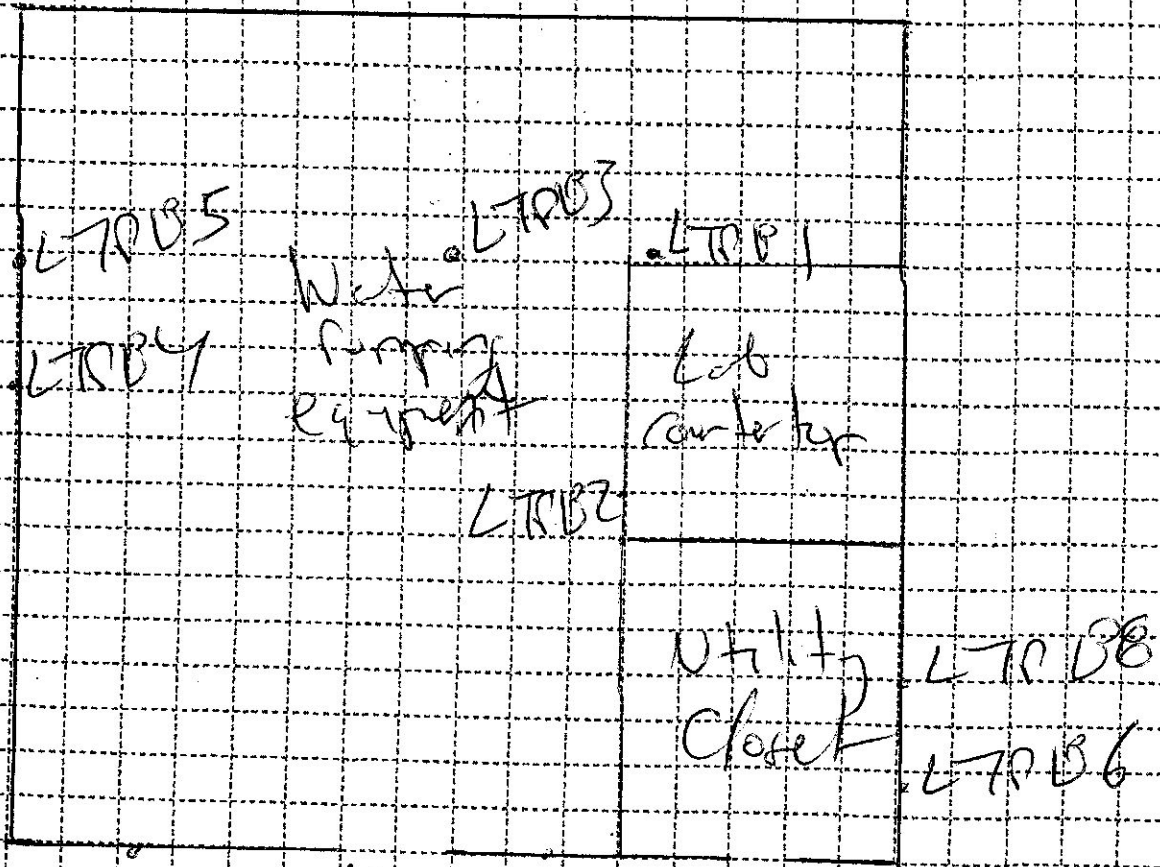 LTPB3
LTPB5
LTPB1
Water
Pumping
equipment
LTPB4
Lab
countertop
LTPB2
Utility
Closet
LTPB8
LTPB6